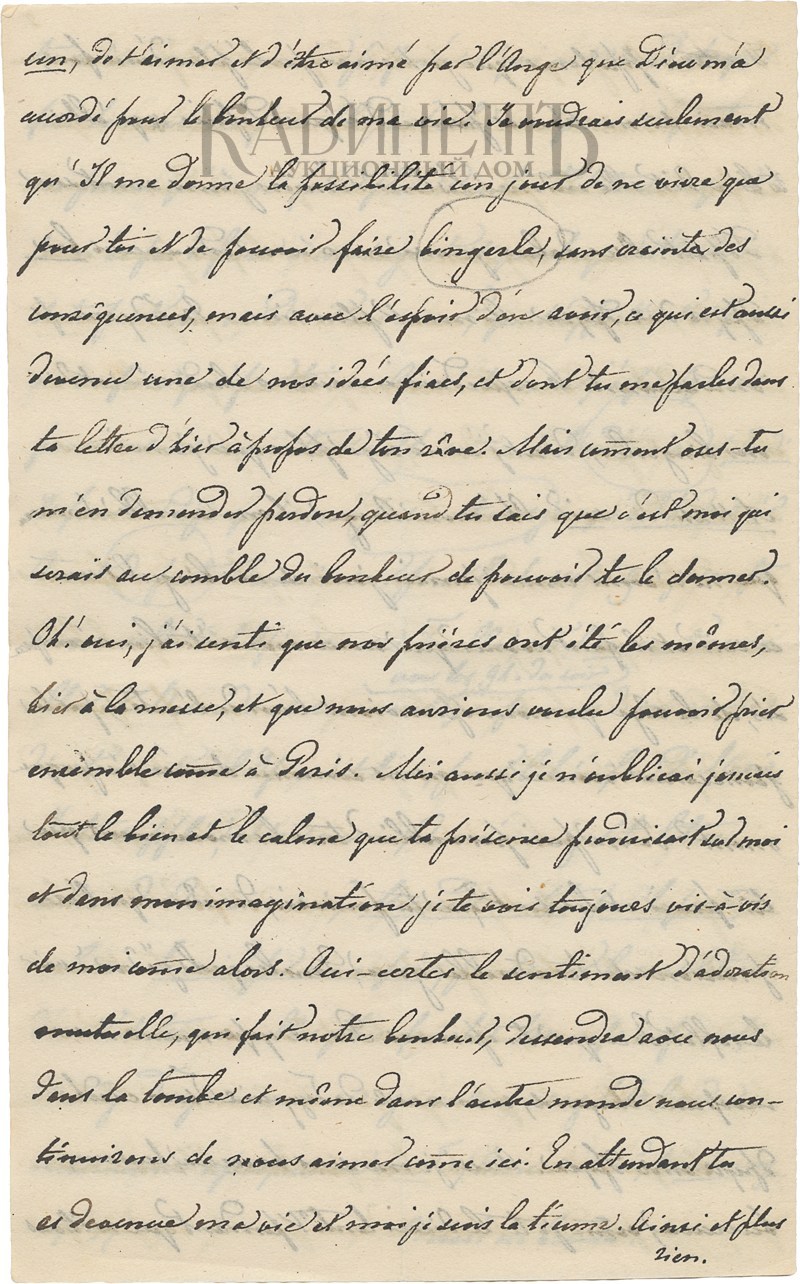 un, de t'aimer et d'être aimé par l'Ange que Dieu m'a
accordé pour le bonheur de ma vie. Je voudrais seulement
КАБИНЕТЪ
АУКЦИОННЫЙ ДОМ
qu' Il me donne la possibilité un jour de ne vivre que
pour toi et de pouvoir faire bingerle, sans crainte des
conséquences, mais avec l'espoir d'en avoir, ce qui est aussi
devenu une de nos idées fixes, et dont tu me parles dans
ta lettre d'hier à propos de ton rêve. Mais coment oses-tu
m'en demander pardon, quand tu sais que c'est moi qui
serais au comble du bonheur de pouvoir te le donner.
Oh! oui, j'ai senti que nos prières ont été les mêmes,
hier à la messe, et que nous aurions voulu pouvoir prier
ensemble come à Paris. Moi aussi je n'oublierai jamais
tout le bien et le calme que ta présence produisait sur moi
et dans mon imagination je te vois toujours vis-à-vis
de moi come alors. Oui-certes le sentiment d'adoration
mutuelle, qui fait notre bonheur, descendra avec nous
dans la tombe et même dans l'autre monde nous con-
tinuirons de nous aimer come ici. En attendant tu
es devenue ma vie et moi je suis la tienne. Ainsi et plus
rien.